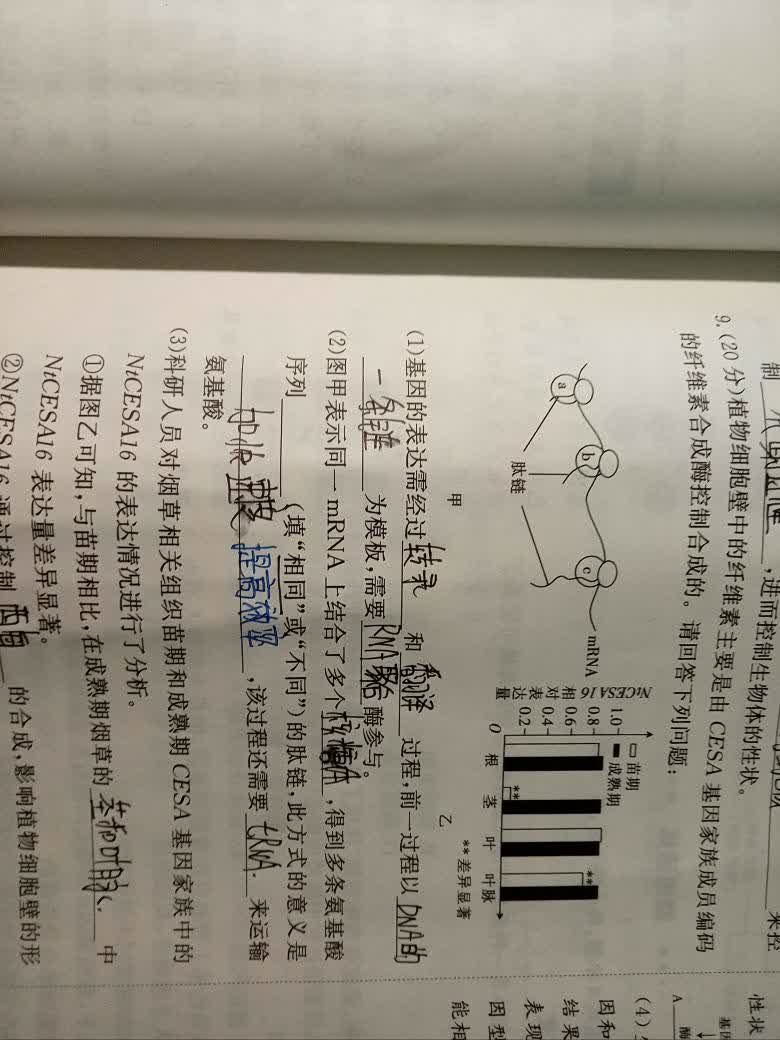 ,进而控制生物体的性状。
9.(20分)植物细胞壁中的纤维素主要是由CESA基因家族成员编码
的纤维素合成酶控制合成的。请回答下列问题:
a
b
c
mRNA
肽链
甲
NtCESA16相对表达量
1.0
0.8
0.6
0.4
0.2
O
□苗期
■成熟期
根
茎
叶
叶脉
**
**
**差异显著
乙
(1)基因的表达需经过转录和翻译过程,前一过程以DNA的
一条链为模板,需要RNA聚合酶参与。
(2)图甲表示同一mRNA上结合了多个核糖体,得到多条氨基酸
序列(填“相同”或“不同”)的肽链,此方式的意义是
提高效率,该过程还需要tRNA来运输
氨基酸。
(3)科研人员对烟草相关组织苗期和成熟期CESA基因家族中的
NtCESA16的表达情况进行了分析。
①据图乙可知,与苗期相比,在成熟期烟草的茎和叶脉中
NtCESA16表达量差异显著。
②NtCESA16通过控制的合成,影响植物细胞壁的形
性状
基因
A
酶
(4)
因和
结果
表现
因型
能相